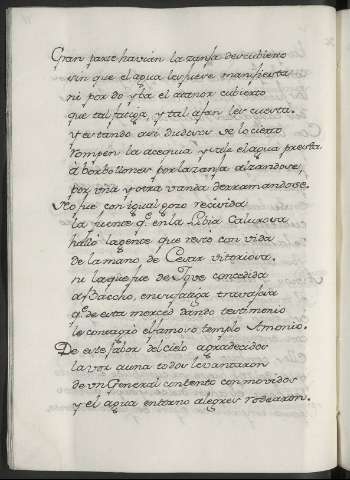 Gran parte havian la zanja descubierto
sin que el agua les fuese manifiesta
ni por do yba el atanor cubierto
que tal fatiga, y tal afan les cuesta.
y estando asi dudosos de lo cierto
rompen la acequia y sale el agua presta
à borbotones por la zanja alzandose,
por una y otra vanda derramandose.
No fue con igual gozo recivida
la fuente q.e en la Libia Calurosa
halló la gente que resto con vida
de la mano de Cesar vitoriosa.
ni la que fue de Jove concedida
a Baccho, en su fatiga travajosa
q.e de esta merced dando testimonio
le consagró el famoso templo Amonio.
De este fabor del cielo agradecidos
la voz a una todos levantaron
de un General contento conmovidos
y el agua entorno alegres rodearon.